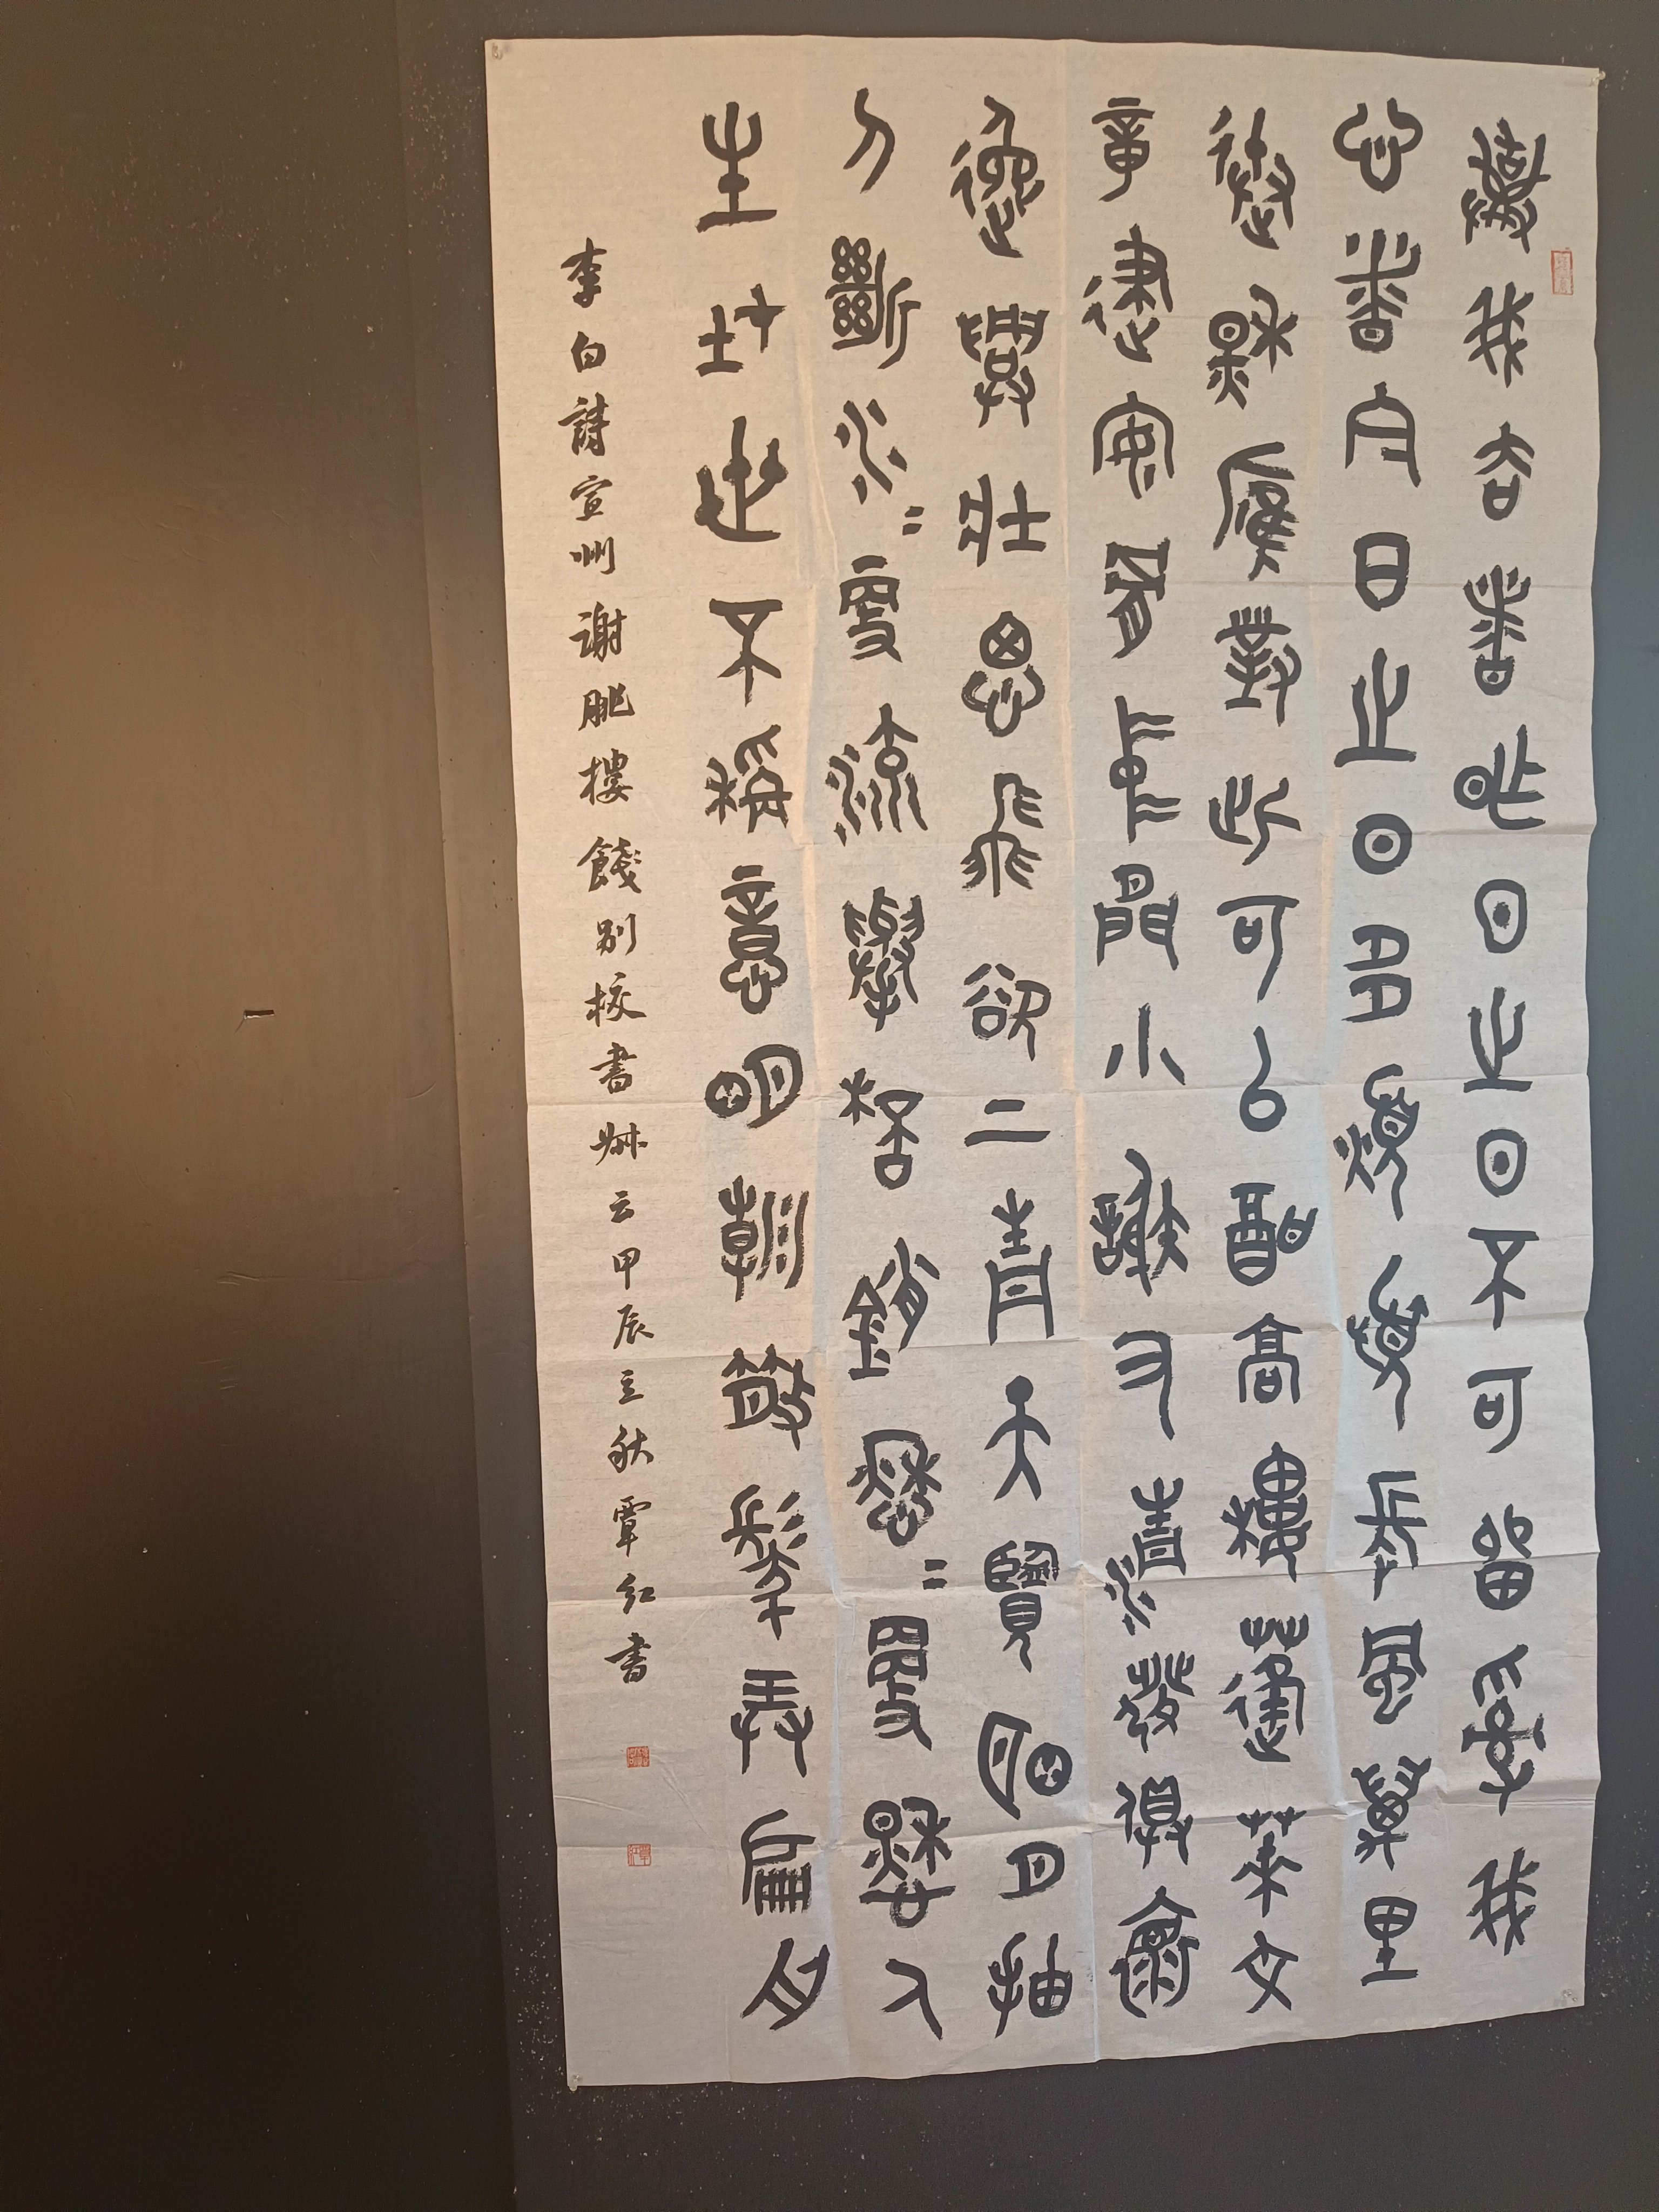 棄我去者昨日之日不可留亂我
心者今日之日多煩憂長風萬里
送秋雁對此可以酣高樓蓬萊文
章建安骨中間小謝又清發俱懷
逸興壯思飛欲上青天覽明月抽
刀斷水〻更流舉杯銷愁〻更愁人
生在世不稱意明朝散髮弄扁舟
李白詩宣州谢朓樓餞别校書叔云甲辰立秋覃红書